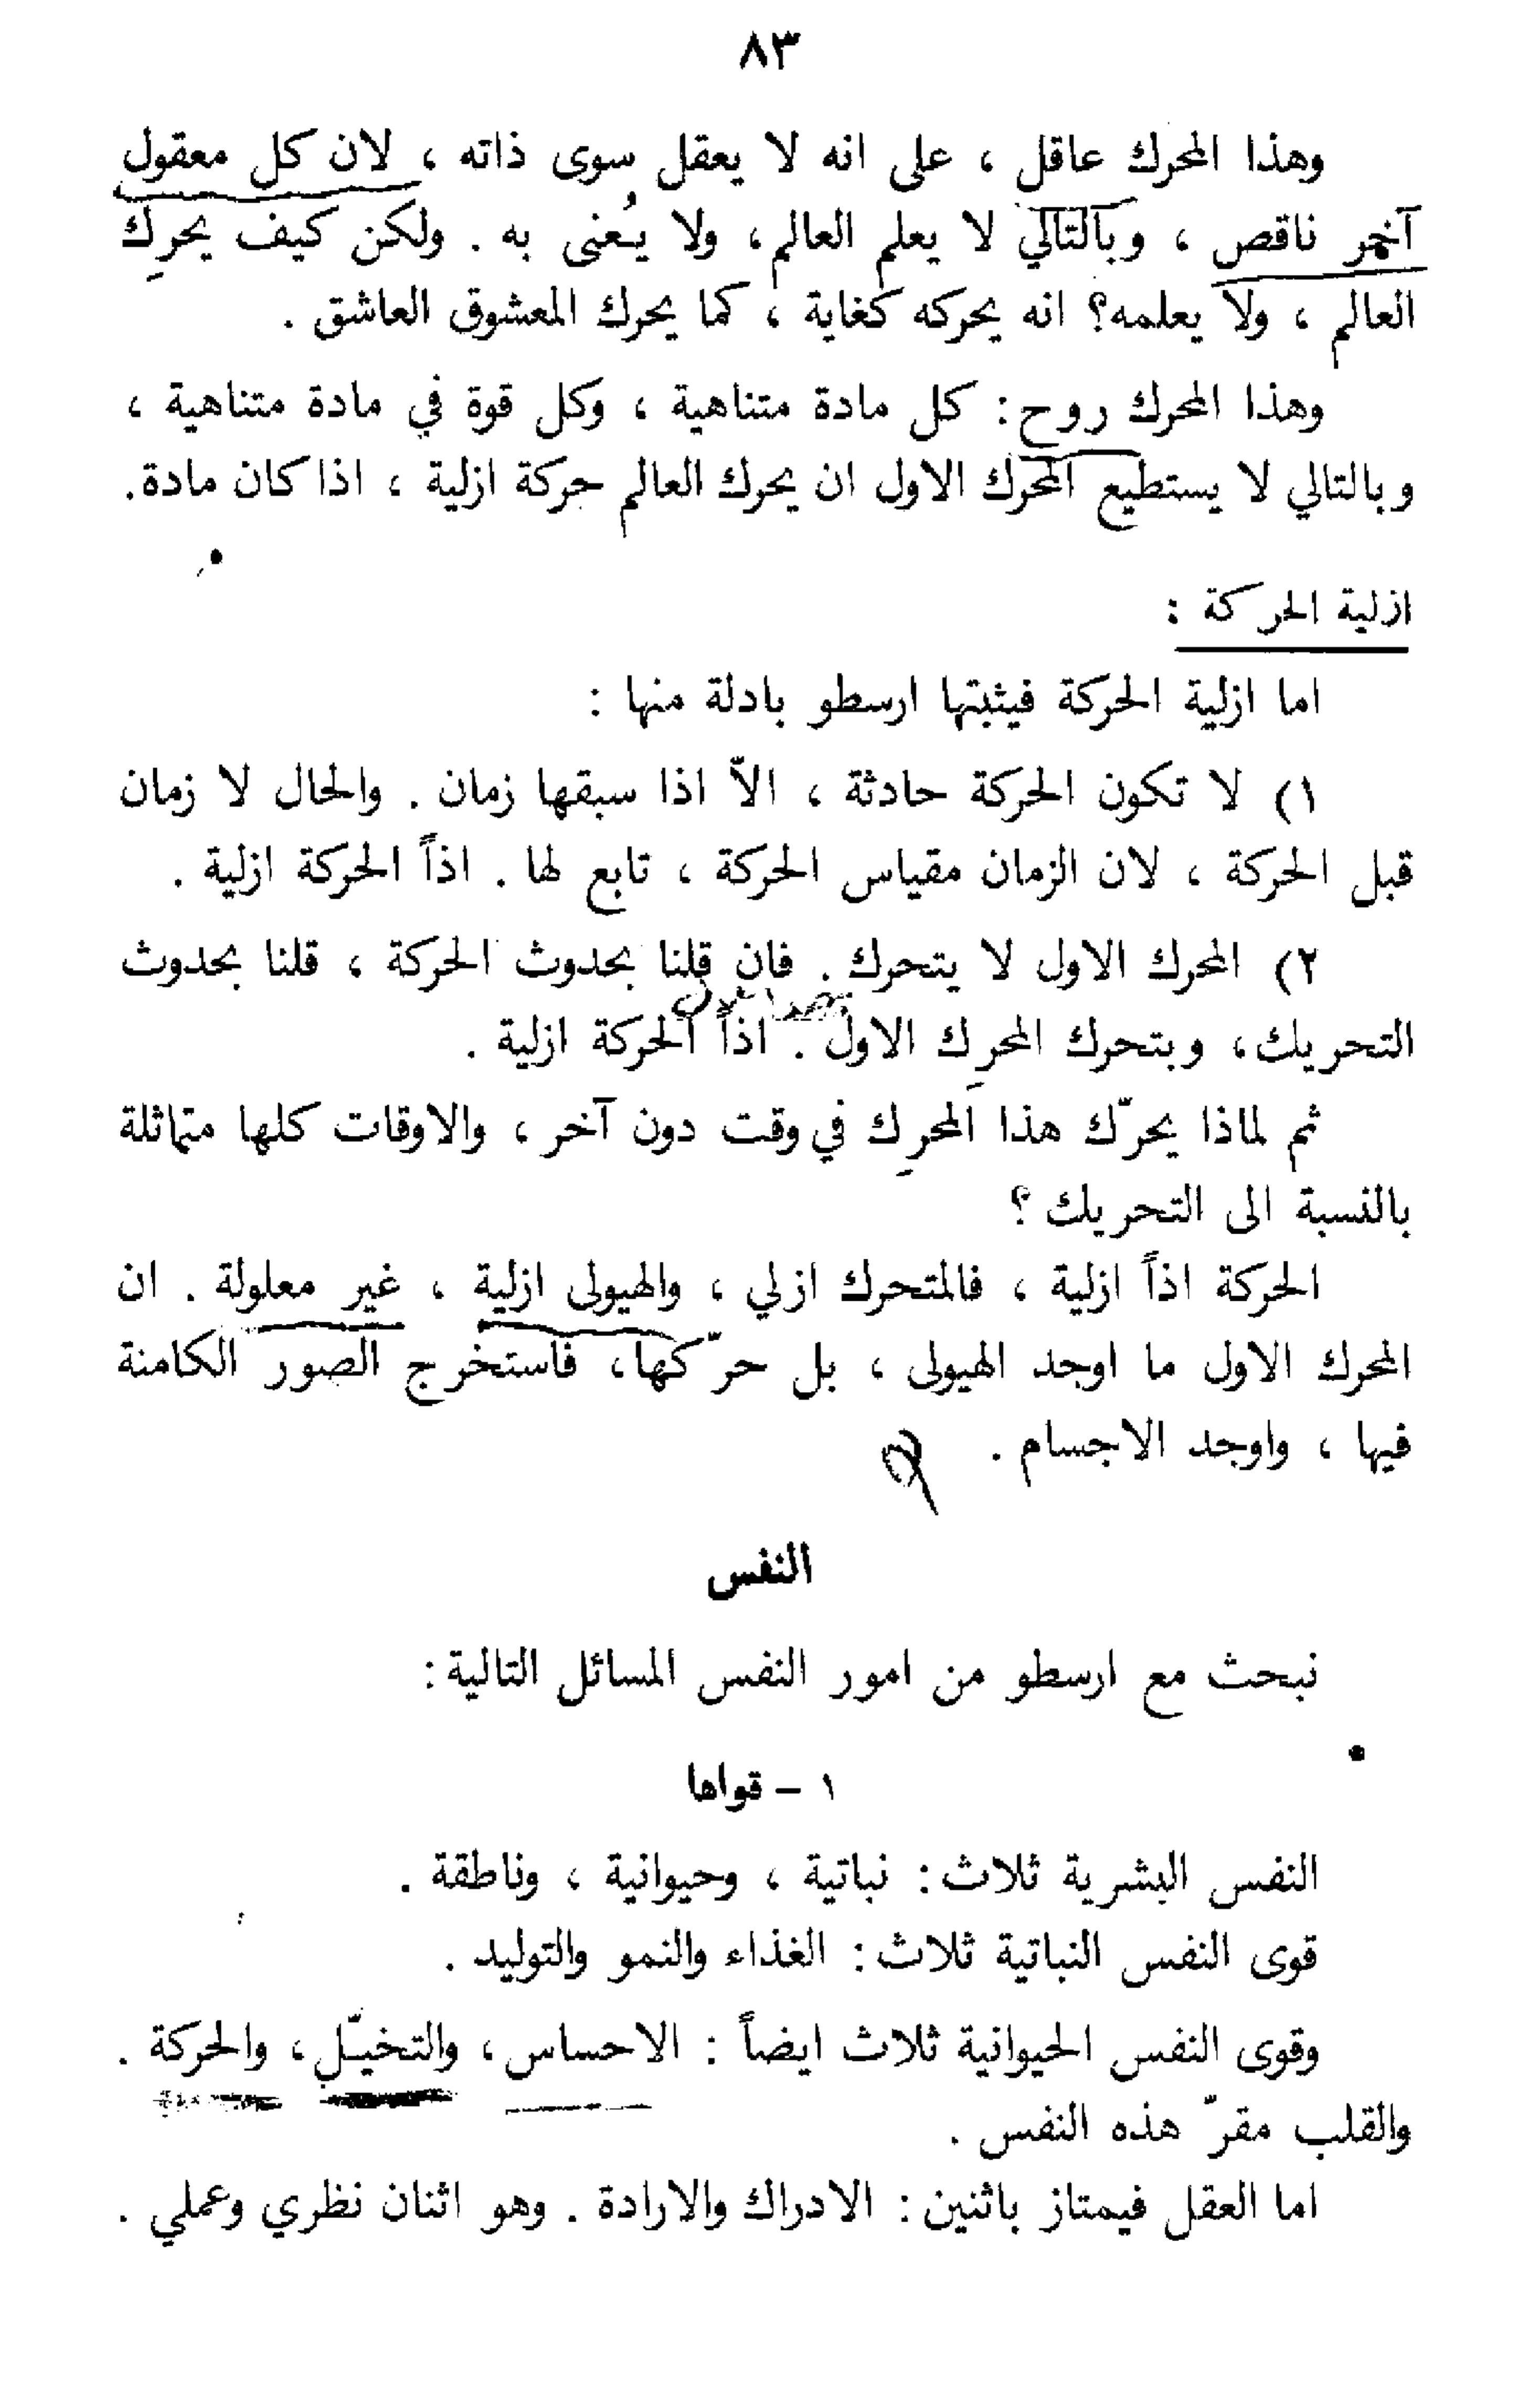 ٨٣
وهذا المحرك عاقل ، على انه لا يعقل سوى ذاته ، لان كل معقول
آخر ناقص ، وبالتالي لا يعلم العالم، ولا يُعنى به . ولكن كيف يحرِك
العالم ، ولا يعلمه؟ انه يحركه كغاية ، كما يحرك المعشوق العاشق .
وهذا المحرك روح: كل مادة متناهية ، وكل قوة في مادة متناهية ،
وبالتالي لا يستطيع المحرك الاول ان يحرك العالم حركة ازلية ، اذا كان مادة.
ازلية الحركة :
اما ازلية الحركة فيثبتها ارسطو بادلة منها :
١) لا تكون الحركة حادثة ، الاّ اذا سبقها زمان . والحال لا زمان
قبل الحركة ، لان الزمان مقياس الحركة ، تابع لها . اذاً الحركة ازلية .
٢) المحرك الاول لا يتحرك . فان قلنا بحدوث الحركة ، قلنا بحدوث
التحريك، وبتحرك المحرِك الاول . اذاً الحركة ازلية .
ثم لماذا يحرّك هذا المحرِك في وقت دون آخر ، والاوقات كلها متماثلة
بالنسبة الى التحريك ؟
الحركة اذاً ازلية ، فالمتحرك ازلي ، والهيولى ازلية ، غير معلولة . ان
المحرك الاول ما اوجد الهيولى ، بل حرّكها، فاستخرج الصور الكامنة
فيها ، واوجد الاجسام .
النفس
نبحث مع ارسطو من امور النفس المسائل التالية:
١ – قواها
النفس البشرية ثلاث: نباتية ، وحيوانية ، وناطقة .
قوى النفس النباتية ثلاث: الغذاء والنمو والتوليد .
وقوى النفس الحيوانية ثلاث ايضاً : الاحساس، والتخيّل، والحركة .
والقلب مقرّ هذه النفس .
اما العقل فيمتاز باثنين: الادراك والارادة . وهو اثنان نظري وعملي .